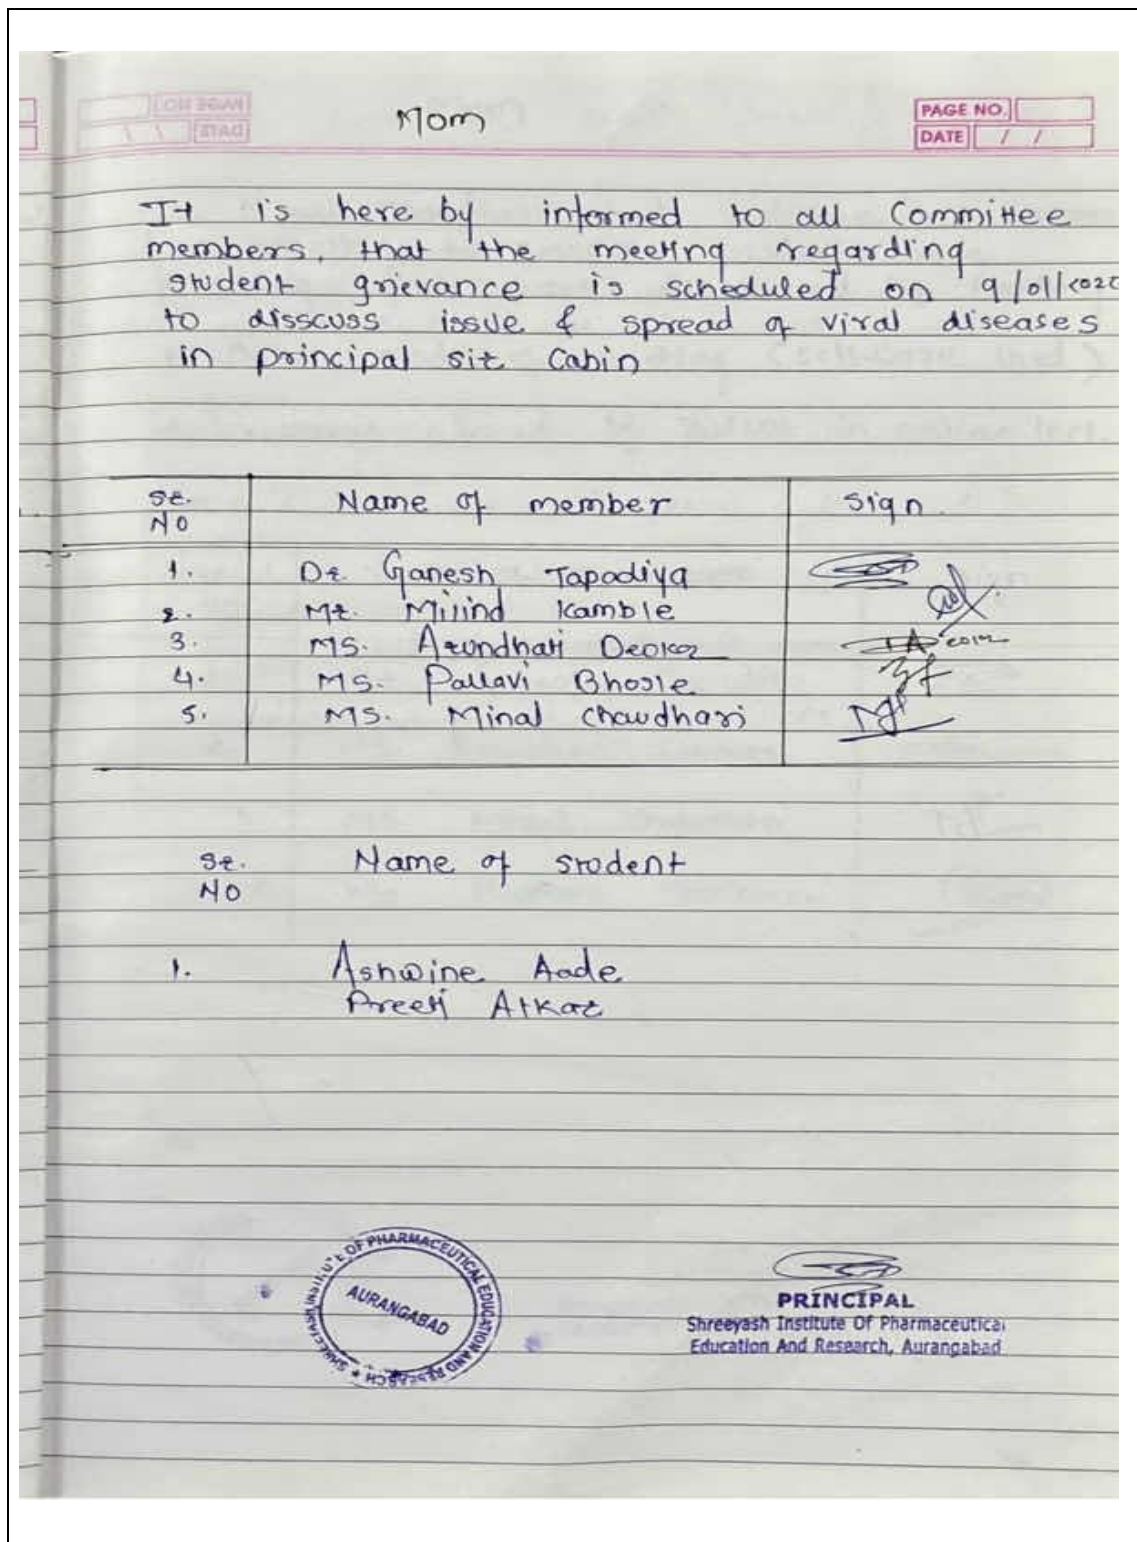 Mom
PAGE NO.
DATE / /
It is here by informed to all Committee
members, that the meeting regarding
student grievance is scheduled on 9/01/2020
to disscuss issue & spread of viral diseases
in principal sir Cabin
Sr. No Name of member Sign
1. Dr. Ganesh Tapadiya
2. Mr. Milind Kamble
3. MS. Arundhati Deokar
4. MS. Pallavi Bhosle
5. MS. Minal Chaudhari
Sr. No Name of student
1. Ashwine Aade
Preeti Atkar
SHREEYASH INSTITUTE OF PHARMACEUTICAL EDUCATION AND RESEARCH
AURANGABAD
PRINCIPAL
Shreeyash Institute Of Pharmaceutical
Education And Research, Aurangabad